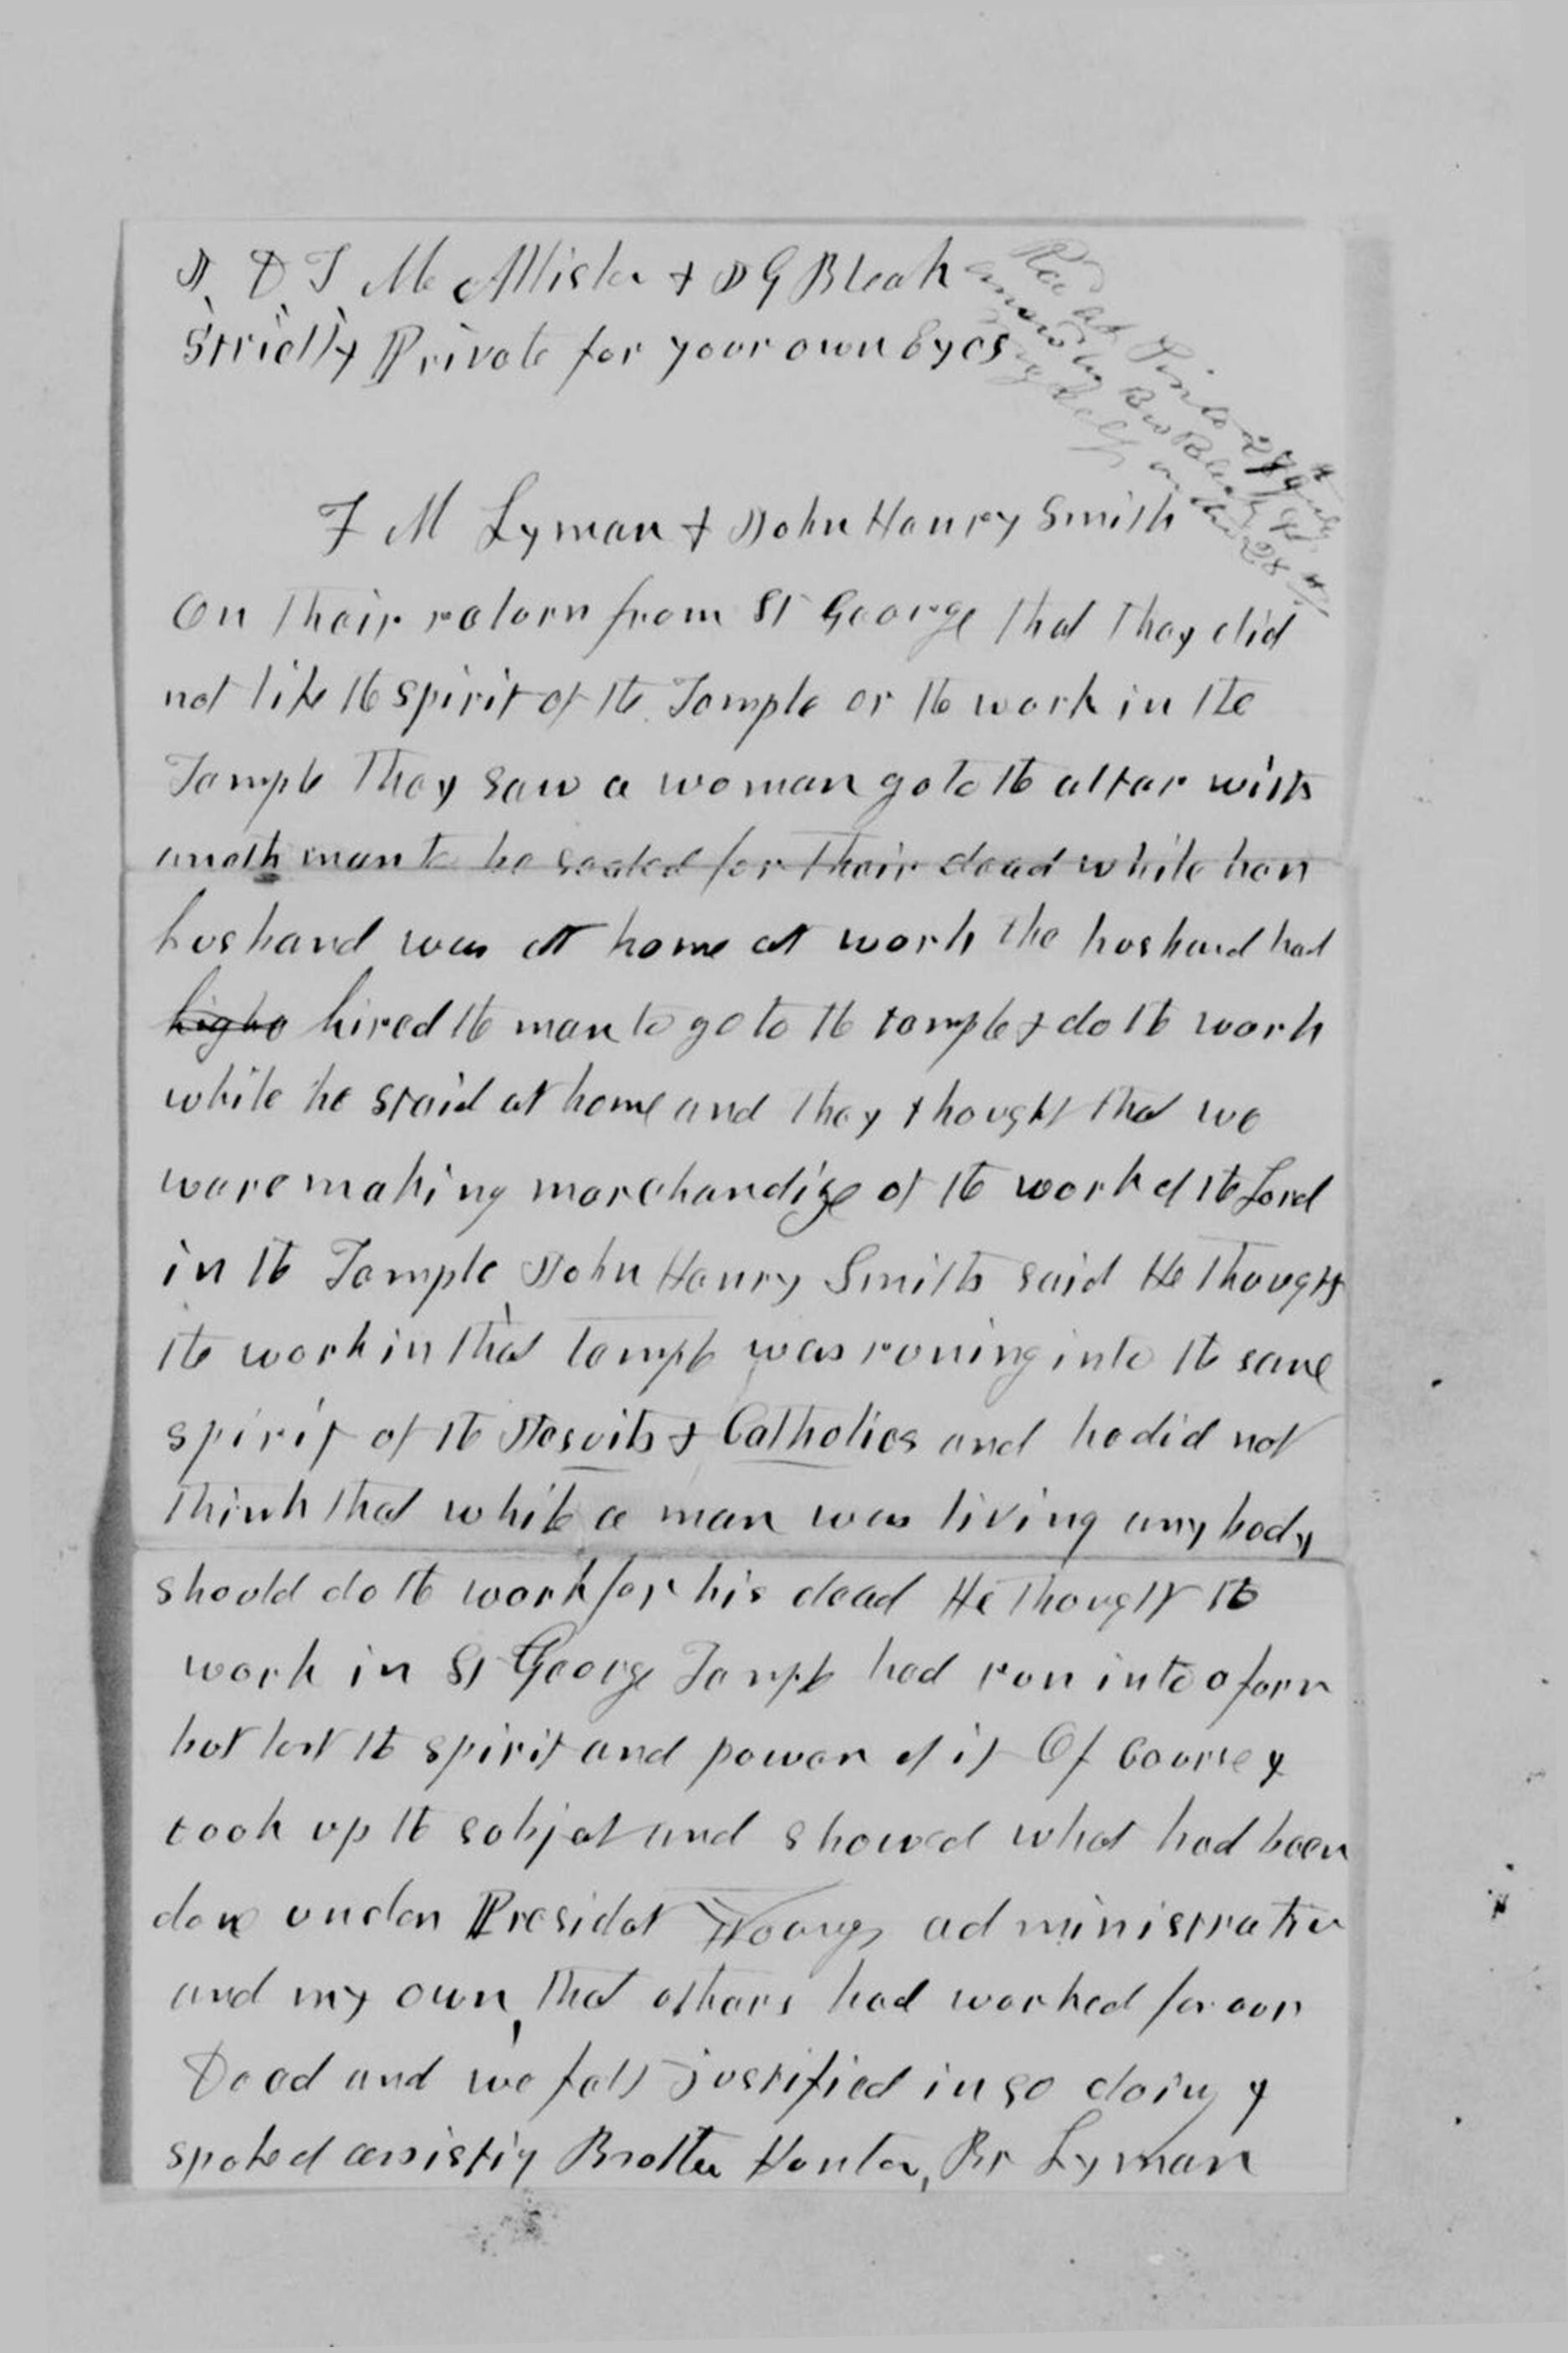 J. D. T. McAllister & J G Bleak
Strictly Private for your own Eyes
Rec at Pinto 27th July
answd by Bro Bleak &
myself on the 28th
F M Lyman & John Henry Smith
On their return from St George that they did
not like the spirit of the Temple or the work in the
Temple They saw a woman go to the altar with
anoth man to be sealed for their dead while her
husband was at home at work the husband had
highe hired the man to go to the temple & do the work
while he staid at home and they thought that we
ware making merchandize of the work of the Lord
in the Temple, John Henry Smith said He thought
the work in that temple was runing into the same
spirit of the Jesuits & Catholics and he did not
think that while a man was living any body
should do the work for his dead He thought the
work in St George Temple had run into a form
but lost the spirit and power of it Of Course I
took up the subject and showed what had been
done under Presidet Youngs administration
and my own, that others had worked for our
Dead and we felt justified in so doing I
spoke of assistig Brother Hunter, Br Lyman